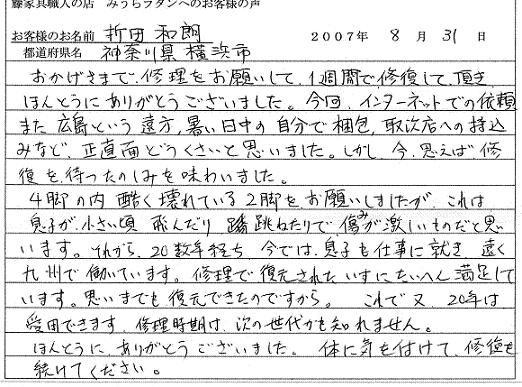 藤家具職人の店 みうらラタンへのお客様の声
お客様のお名前 折田 和朗 2007年 8月 31日
都道府県名 神奈川県横浜市
おかげさまで、修理をお願いして、1週間で修復して頂き
ほんとうにありがとうございました。今回、インターネットでの依頼
また広島という遠方、暑い日中の自分で梱包、取次店への持込
みなど、正直面どうくさいと思いました。しかし、今、思えば修
復を待ったのしみを味わいました。
4脚の内 酷く壊れている2脚をお願いしましたが、これは
息子が小さい頃 飛んだり 跳ねたりで、傷みが激しいものだと思
います。それから、20数年経ち 今では、息子も仕事に就き、遠く
九州で働いています。修理で復元されたいすにたいへん満足して
います。思いまでも復元できたのですから。 これで又、20年は
受用できます。修理時期は、次の世代かも知れません。
ほんとうに、ありがとうございました。 体に気を付けて、修復を
続けてください。